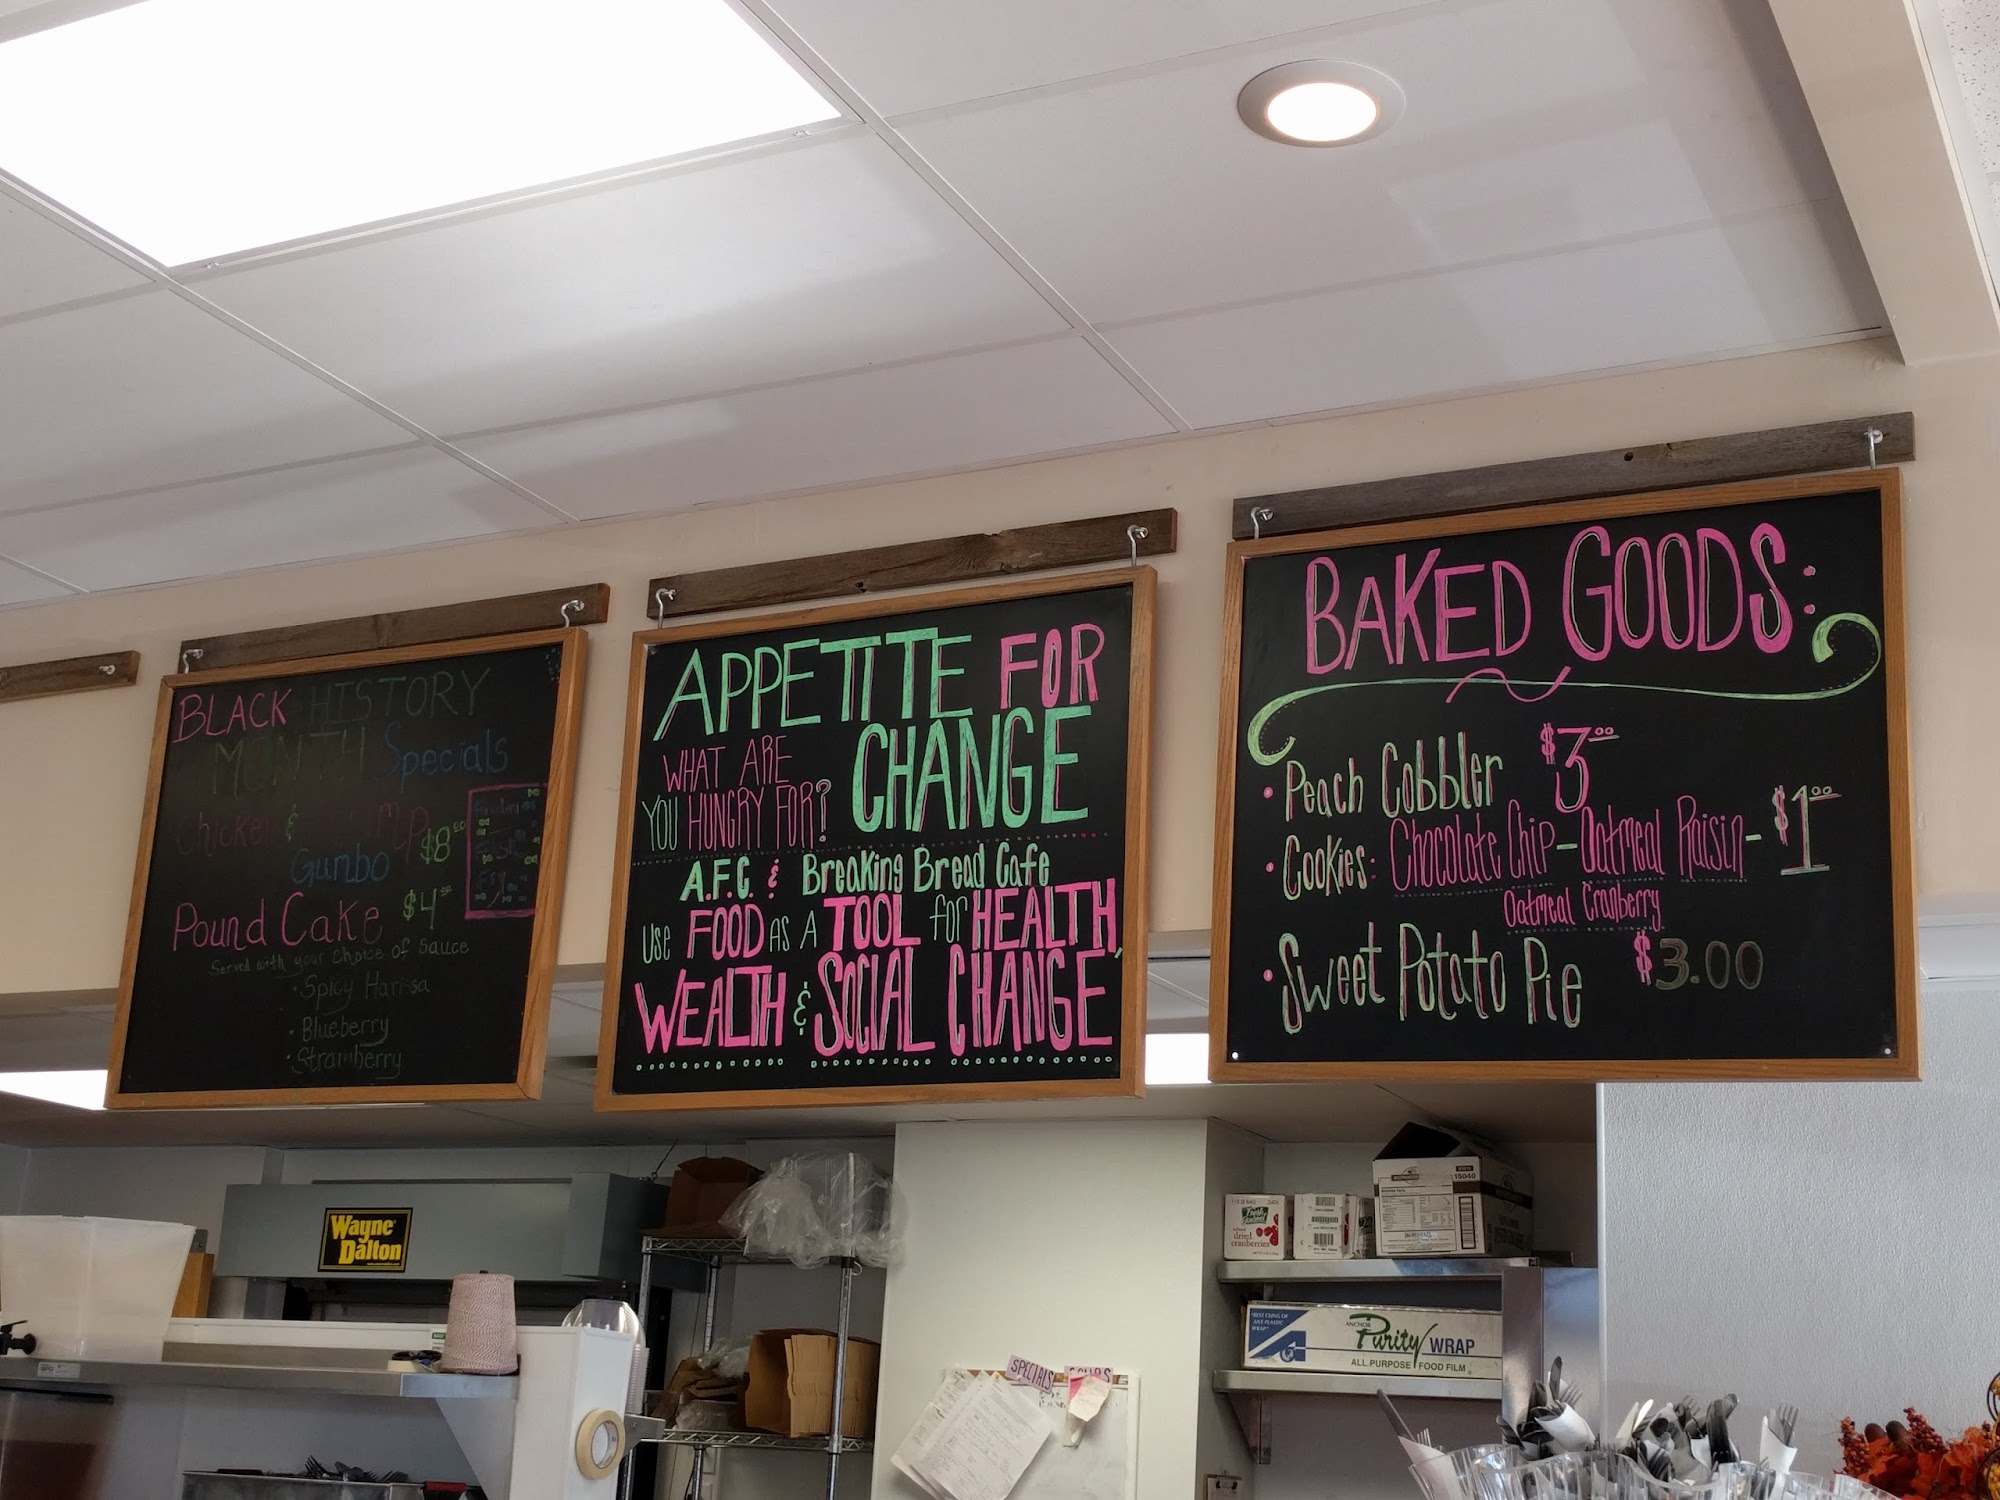 BLACK HISTORY
MONTH Specials
Chicken &
Gumbo $8.00
Pound Cake $4.00
Served with your choice of sauce
• Spicy Harissa
• Blueberry
• Strawberry
APPETITE FOR
CHANGE
WHAT ARE
YOU HUNGRY FOR?
A.F.C. & Breaking Bread Cafe
Use FOOD AS A TOOL for HEALTH,
WEALTH & SOCIAL CHANGE
BAKED GOODS:
• Peach Cobbler $3.00
• Cookies: Chocolate Chip - Oatmeal Raisin - $1.00
Oatmeal Cranberry
• Sweet Potato Pie $3.00
Wayne
Dalton
dried
cranberries
15040
"BEST CLING OF
ANY PLASTIC
WRAP"
ANCHOR
Purity WRAP
ALL PURPOSE FOOD FILM
SPECIALS